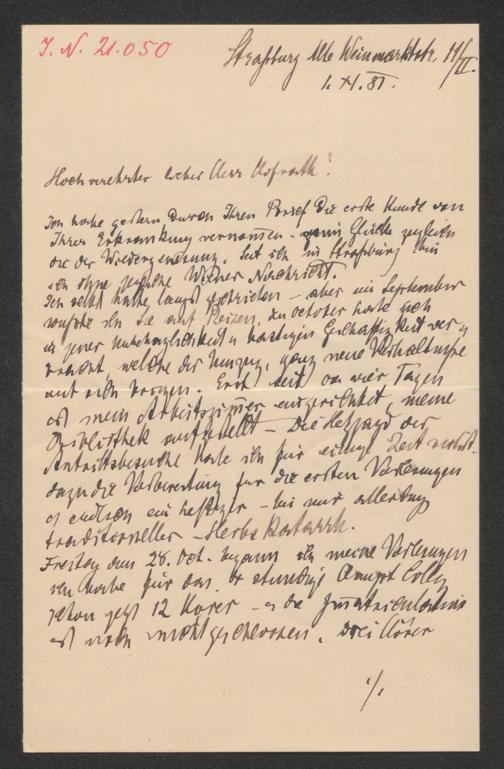 J. N. 21.050
Straßburg Alte Weinmarktstr. 11/II.
1. XI. 81.
Hochverehrter lieber Herr Hofrath!
Ich habe gestern durch Ihren Josef die erste Kunde von
Ihrer Erkrankung vernommen – zum Glücke zugleich
die der Wiedergenesung. Seit ich in Straßburg bin
ich ohne jegliche Wiener Nachricht.
Ich selbst hätte längst geschrieben – aber im September
wußte ich Sie auf Reisen, im October hatte ich
in jener unbehaglichen hastigen Geschäftigkeit ver-
bracht, welche der Umzug, ganz neue Verhältnisse
mit sich bringen. Erst seit vier Tagen
ist mein Arbeitszimmer eingerichtet, meine
Bibliothek aufgestellt – die Hetzjagd der
Antrittsbesuche habe ich für einige Zeit
dazu die Vorbereitung für die ersten Vorlesungen
endlich ein heftiger – bei mir allerdings
traditioneller – Herbstkatarrh.
Freitag den 28. Oct. begann ich meine Vorlesungen
ich habe für das 4 stündige Colleg
schon jetzt 12 Hörer – die Immatriculation
ist noch nicht geschlossen. Drei Hörer
./.